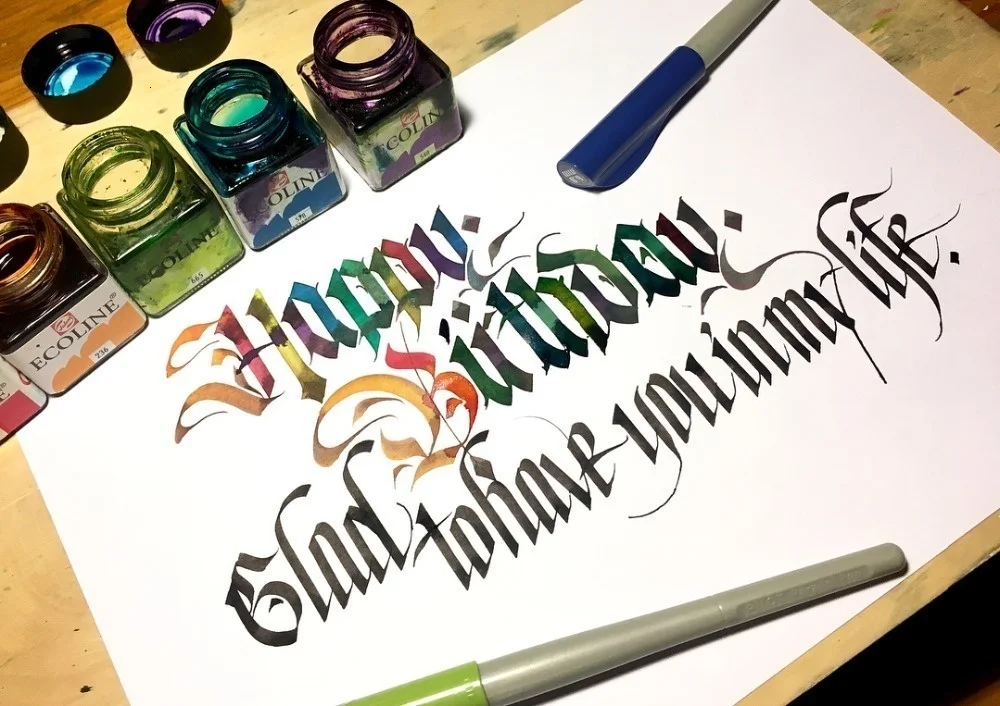 Happy
Birthday
Glad to have you in my life.
ECOLINE
ECOLINE
ECOLINE
ECOLINE
736
665